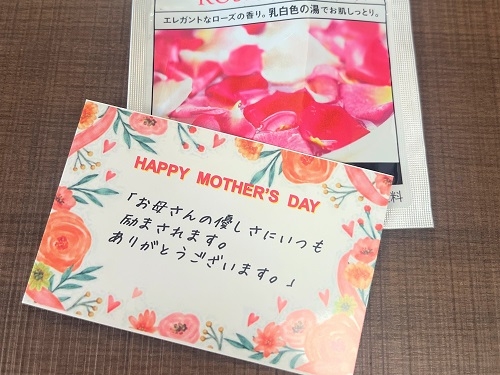 エレガントなローズの香り。乳白色の湯でお肌しっとり。
HAPPY MOTHER'S DAY
「お母さんの優しさにいつも
励まされます。
ありがとうございます。」
料